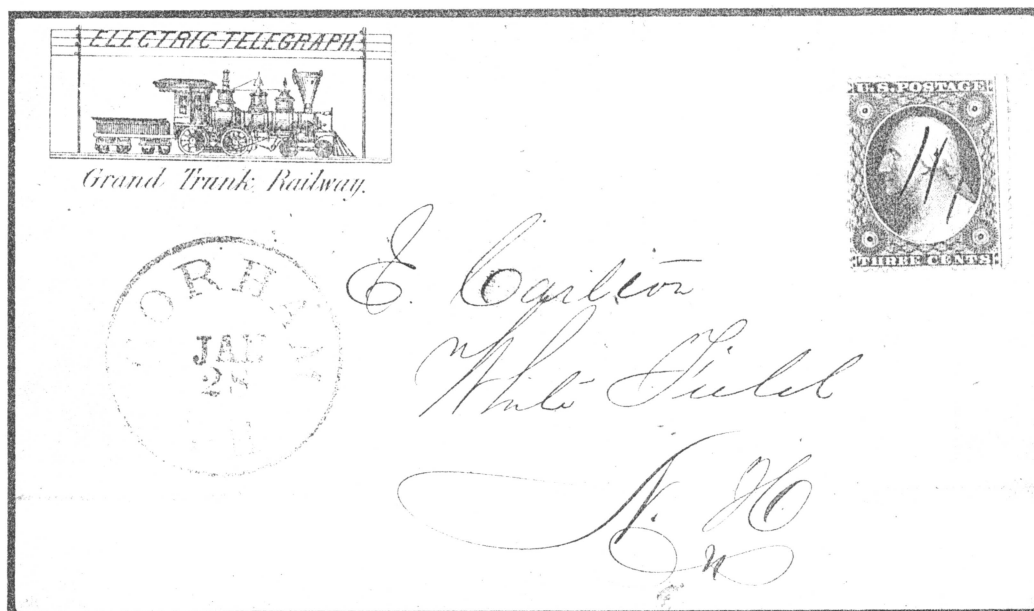 ELECTRIC TELEGRAPH.
Grand Trunk Railway.
U.S. POSTAGE
THREE CENTS
GORHAM
JAN
E. Carleton
White Field
N. H.